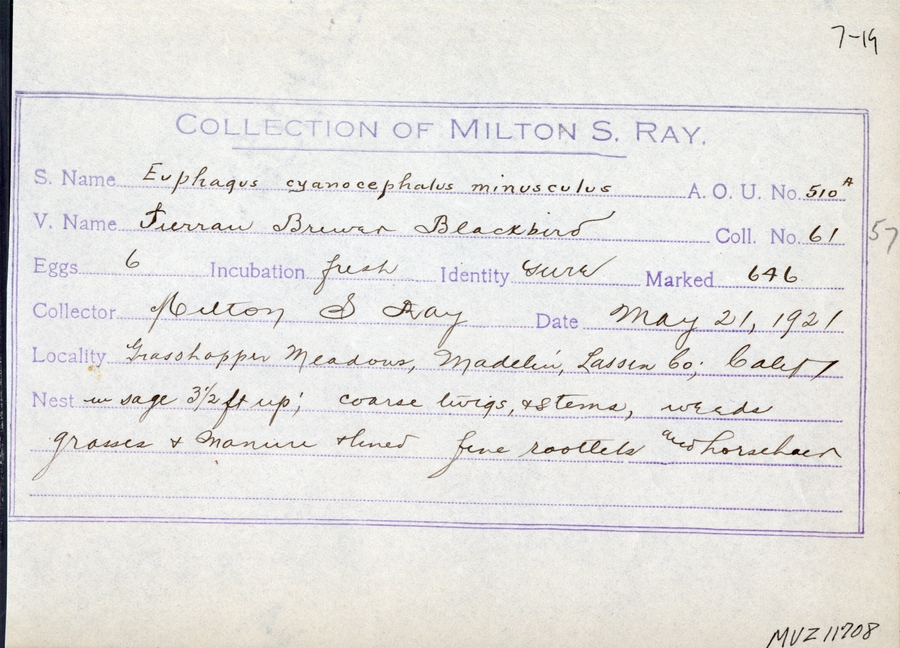 7-19
COLLECTION OF MILTON S. RAY.
S. Name Euphagus cyanocephalus minusculus A. O. U. No. 510A
V. Name Brewer Blackbird Coll. No. 61 57
Eggs 6 Incubation fresh Identity sure Marked 646
Collector Milton S Ray Date May 21, 1921
Locality Grasshopper Meadows, Madelin, Lassen Co; Calif
Nest in sage 3½ ft up; coarse twigs, & stems, weeds
grasses & manure & lined fine rootlets and horsehair
MVZ 11708